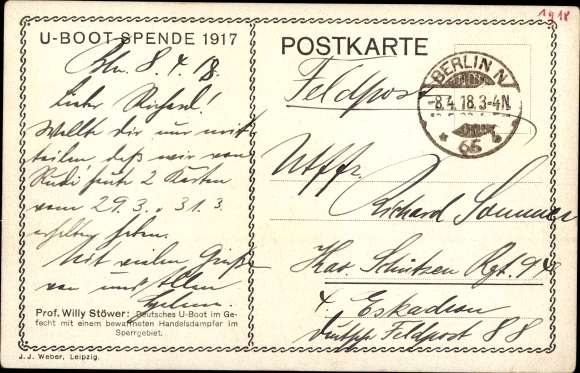 1918
U-BOOT-SPENDE 1917
Bln. 8.4.18.
Lieber Richard!
Wollte dir nur mit
teilen, daß wir von
Rudi heute 2 Karten
vom 29.3. u. 31.3.
erhalten haben.
Mit vielen Grüßen
von uns Allen
Prof. Willy Stöwer: Deutsches U-Boot im Ge-
fecht mit einem bewaffneten Handelsdampfer im
Sperrgebiet.
J. J. Weber, Leipzig.
POSTKARTE
Feldpost
BERLIN N
-8.4.18.3-4N.
* 65 *
Utffz.
Richard Sommer
Kav. Schützen Rgt. 94
4. Eskadron
Deutsche Feldpost 88